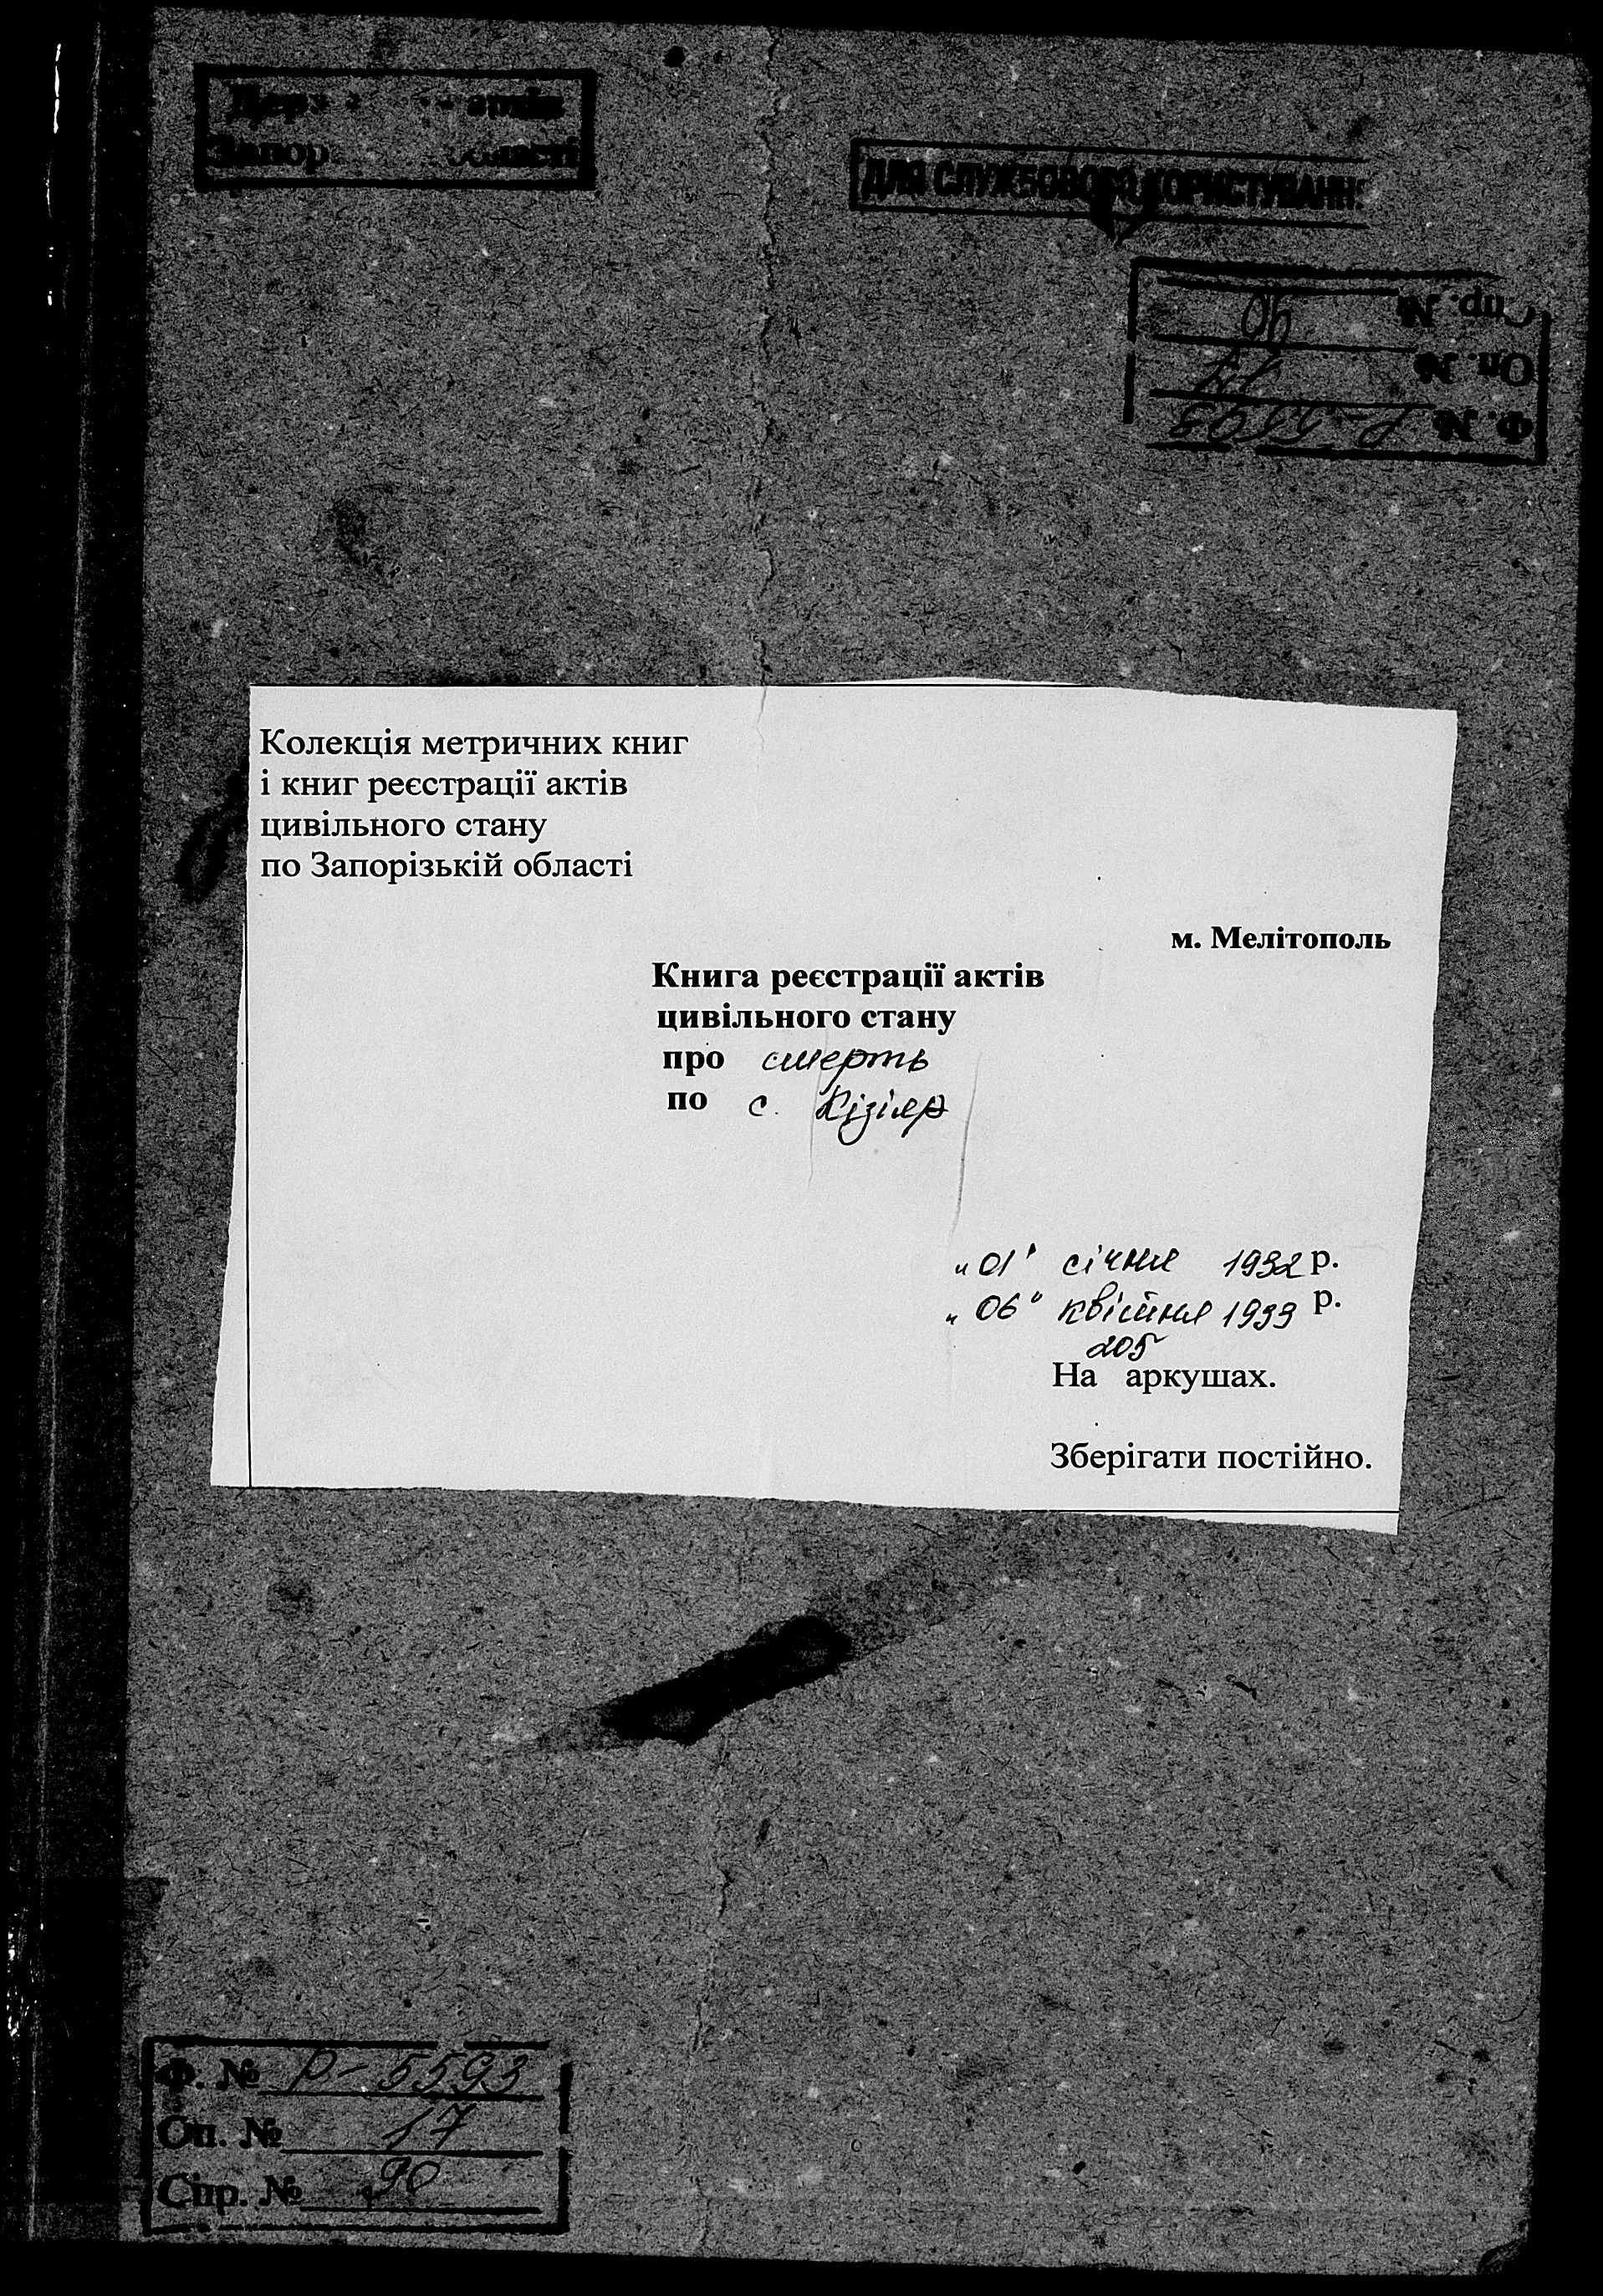 ДЛЯ СЛУЖБОВОГО КОРИСТУВАНН
Спр. № 90
Оп. № 17
Ф. № Р-5593
Колекція метричних книг
і книг реєстрації актів
цивільного стану
по Запорізькій області
м. Мелітополь
Книга реєстрації актів
цивільного стану
про смерть
по с. Кізіяр
„01" січня 1932 р.
„06" квітня 1933 р.
205
На аркушах.
Зберігати постійно.
Ф. № Р-5593
Оп. № 17
Спр. № 90